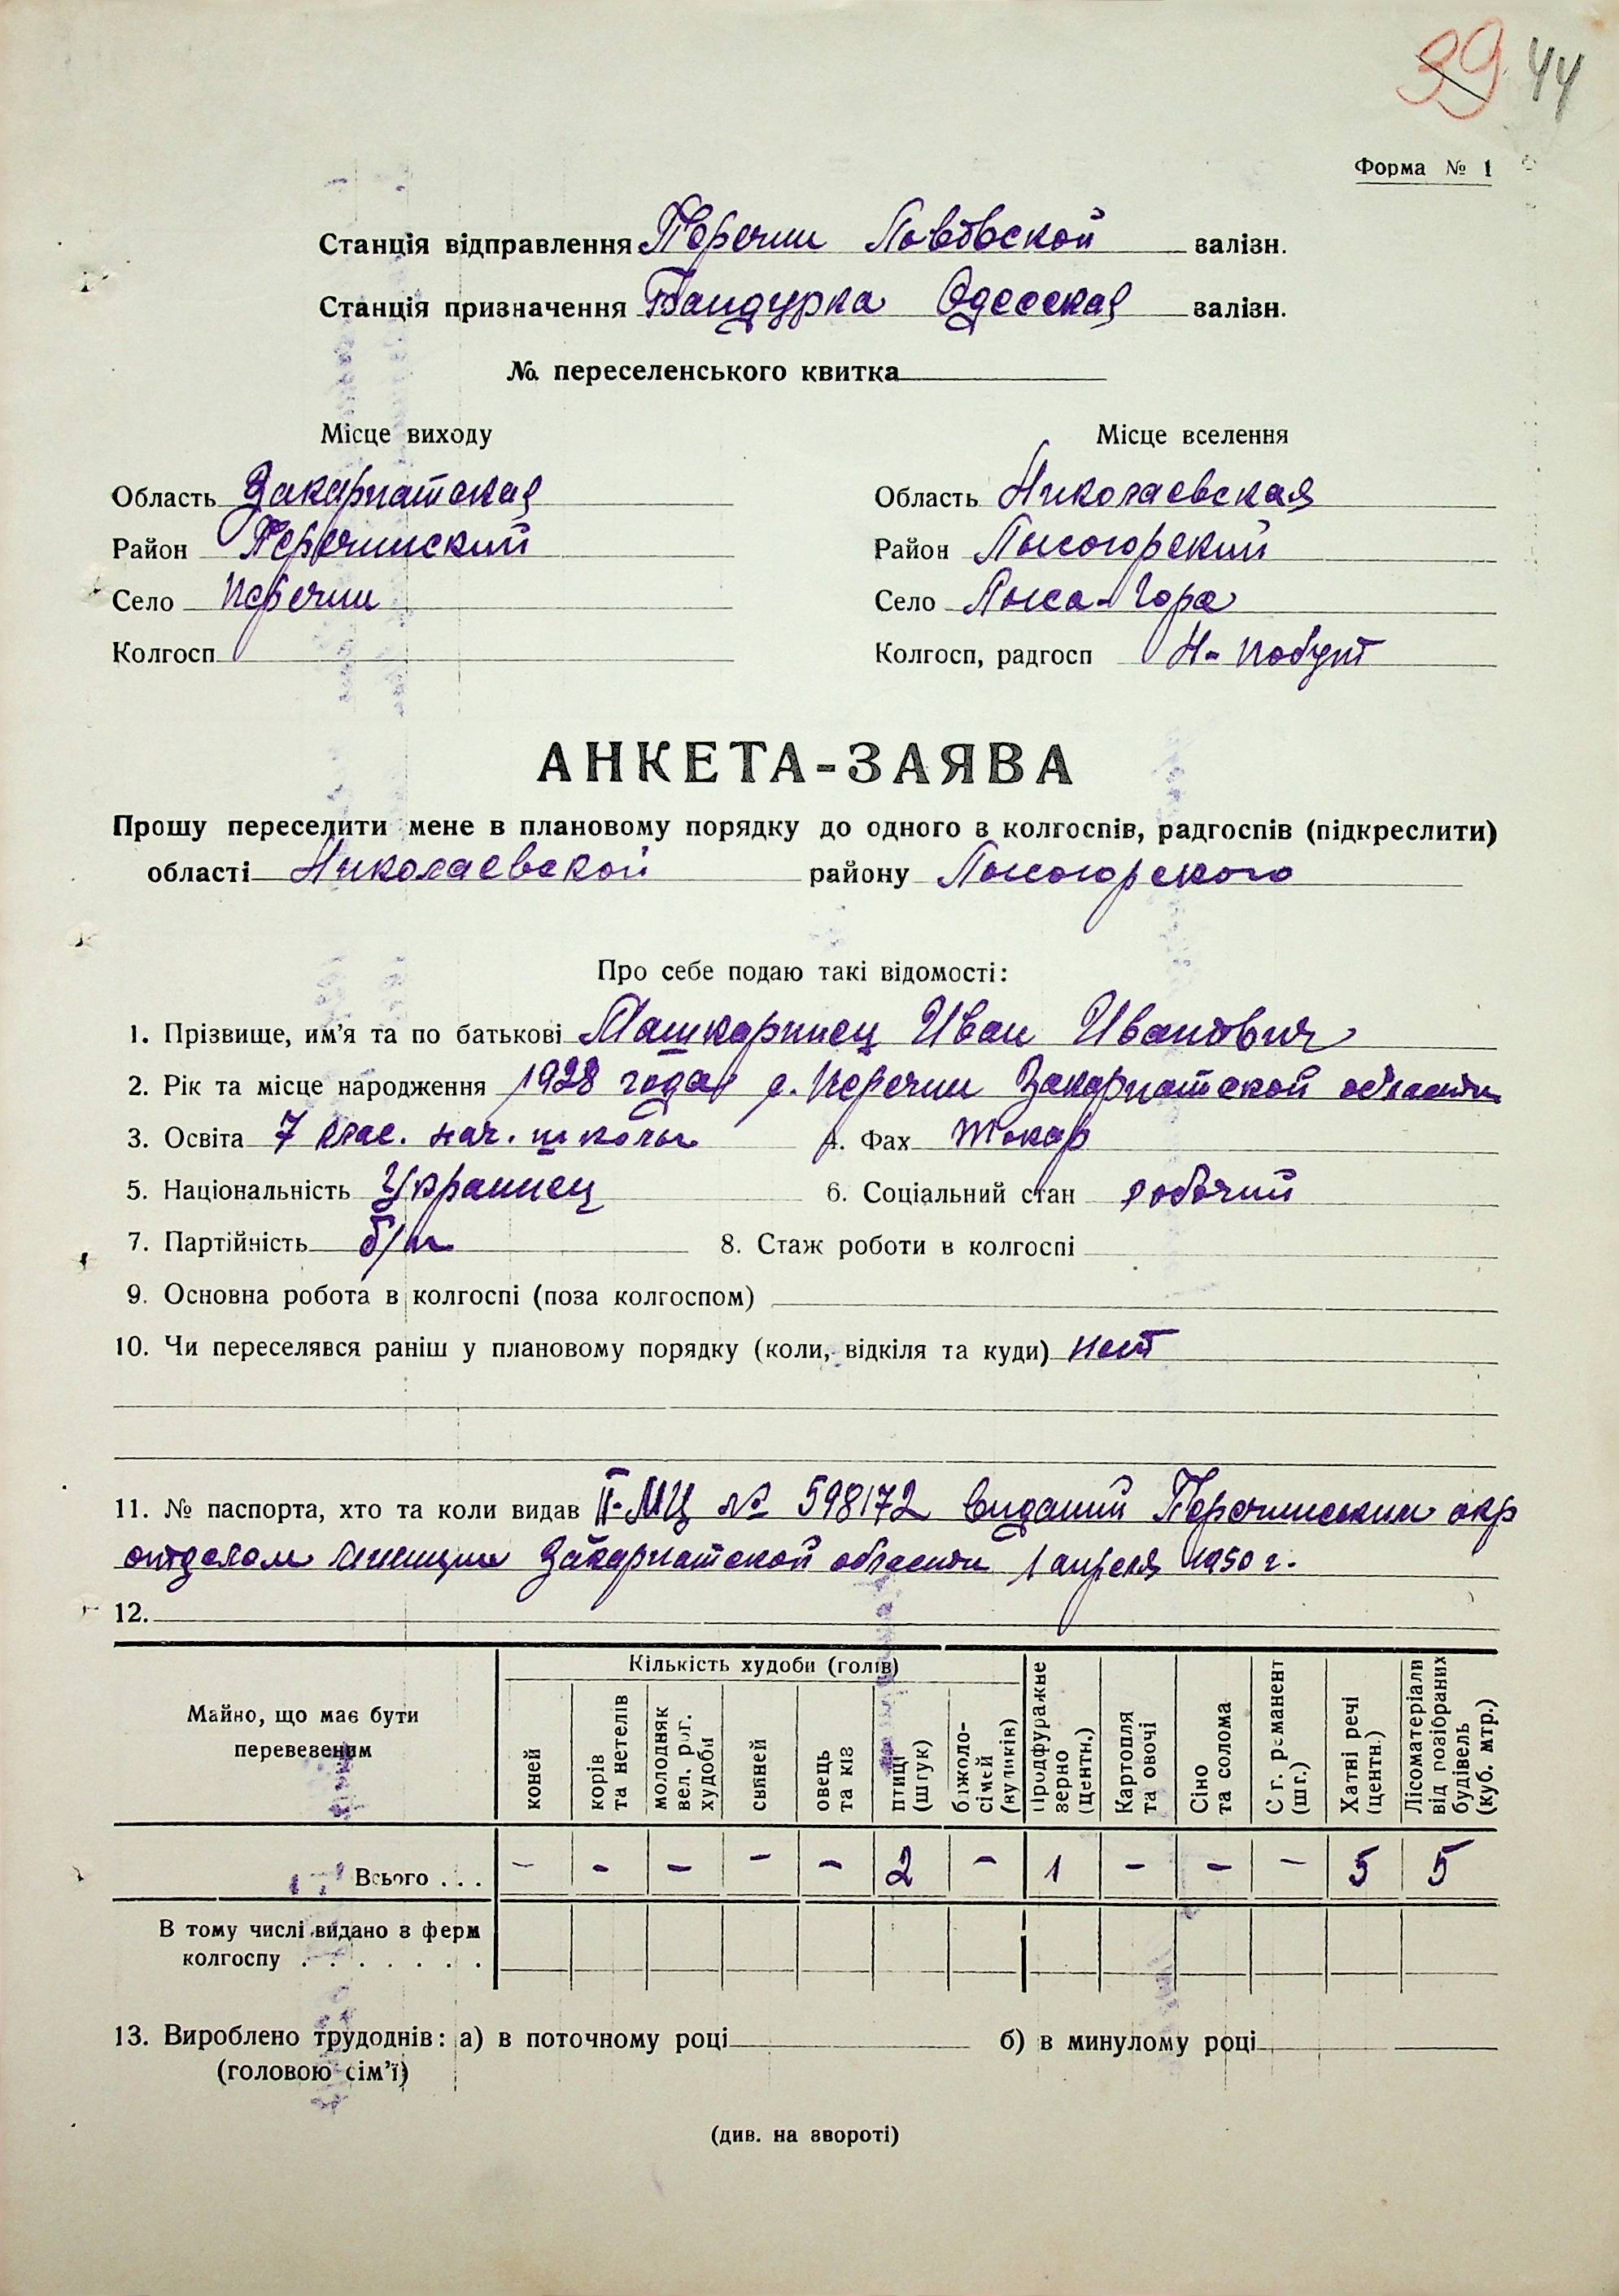 39 44
Форма № 1
Станція відправлення Перечин Львовской залізн.
Станція призначення Бандурка Одесская залізн.
№ переселенського квитка
Місце виходу Місце вселення
Область Закарпатская Область Николаевская
Район Перечинский Район Лысогорский
Село Перечин Село Лыса-Гора
Колгосп Колгосп, радгосп Н-побут
АНКЕТА-ЗАЯВА
Прошу переселити мене в плановому порядку до одного з колгоспів, радгоспів (підкреслити)
області Николаевской району Лысогорского
Про себе подаю такі відомості:
1. Прізвище, им'я та по батькові Машкаринец Иван Иванович
2. Рік та місце народження 1928 года с. Перечин Закарпатской области
3. Освіта 7 клас. нач. школы 4. Фах токар
5. Національність Украинец 6. Соціальний стан робочий
7. Партійність б/п 8. Стаж роботи в колгоспі
9. Основна робота в колгоспі (поза колгоспом)
10. Чи переселявся раніш у плановому порядку (коли, відкіля та куди) нет
11. № паспорта, хто та коли видав II-МЦ № 598172 виданий Перечинским окр
отделом милиции Закарпатской области 1 апреля 1950 г.
12.
Майно, що має бути перевезеним
Кількість худоби (голів)
коней
корів та нетелів
молодняк вел. рог. худоби
свиней
овець та кіз
птиці (штук)
бжоло-сімей (вуликів)
Продфуражне зерно (центн.)
Картопля та овочі
Сіно та солома
С г. реманент (шт.)
Хатні речі (центн.)
Лісоматеріали від розібраних будівель (куб. мтр.)
Всього . . . - - - - - 2 - 1 - - - 5 5
В тому числі видано з ферм
колгоспу . . . . . . .
13. Вироблено трудоднів: а) в поточному році б) в минулому році
(головою сім'ї)
(див. на звороті)